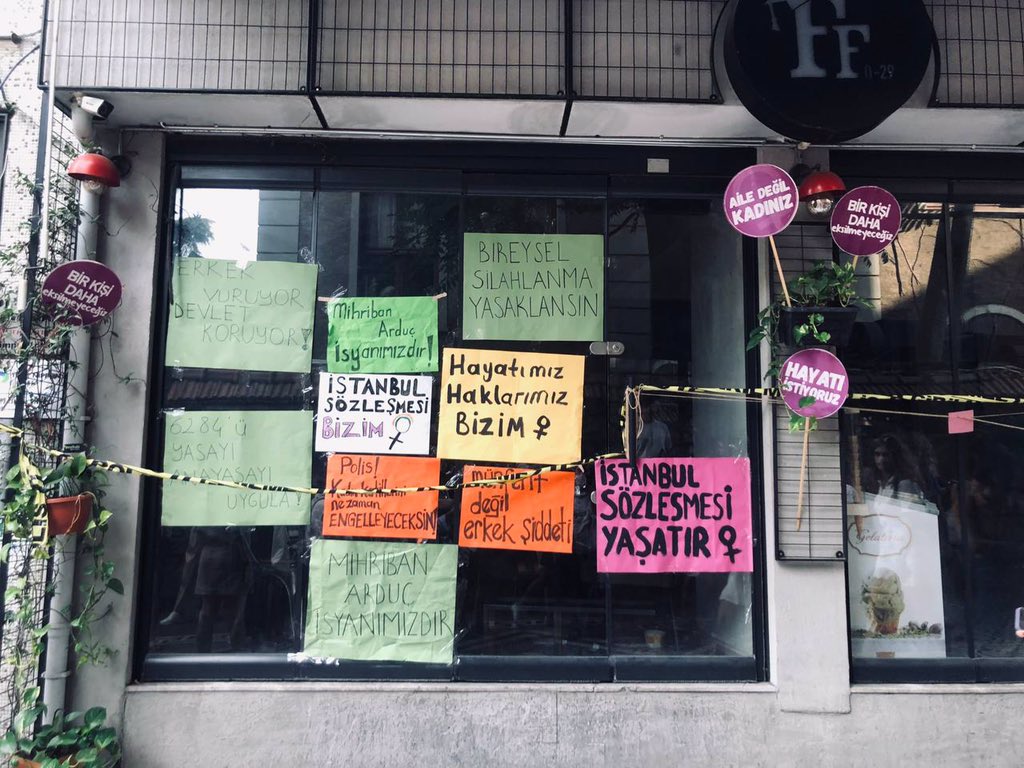 FF
11-29
AİLE DEĞİL
KADINIZ
BİR KİŞİ
DAHA
eksilmeyeceğiz
BİR KİŞİ
DAHA
eksilmeyeceğiz
HAYATI
İSTİYORUZ
ERKEK
VURUYOR
DEVLET
KORUYOR!
Mihriban
Arduç
İsyanımızdır!
BİREYSEL
SİLAHLANMA
YASAKLANSIN
İSTANBUL
SÖZLEŞMESİ
BİZİM
Hayatımız
Haklarımız
BİZİM
6284'ü
YASAYI
ANAYASAYI
UYGULA!
Polis!
ne zaman
ENGELLEYECEKSİN
münferit
değil
erkek şiddeti
İSTANBUL
SÖZLEŞMESİ
YAŞATIR
MİHRİBAN
ARDUÇ
İSYANIMIZDIR
Gelateria